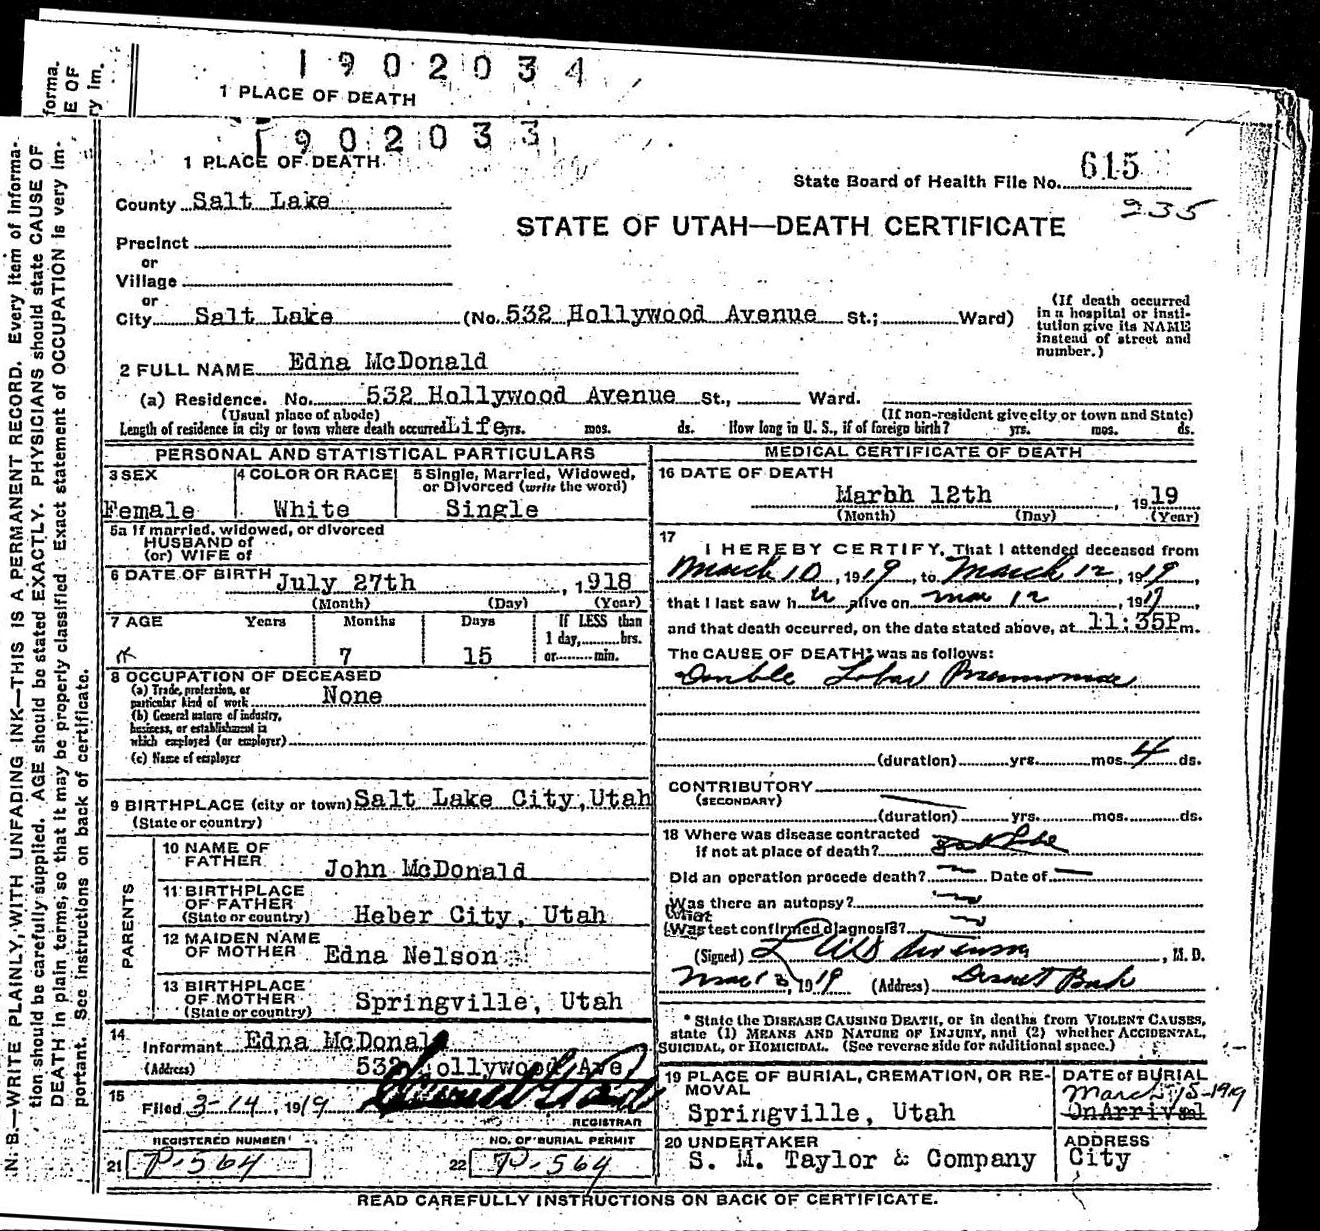 1902034
1 PLACE OF DEATH
forma.
E OF
ry im.
1902033
1 PLACE OF DEATH
State Board of Health File No. 615
235
County Salt Lake
STATE OF UTAH—DEATH CERTIFICATE
Precinct
or
Village
or
City Salt Lake (No. 532 Hollywood Avenue St.; Ward)
(If death occurred
in a hospital or insti-
tution give its NAME
instead of street and
number.)
2 FULL NAME Edna McDonald
(a) Residence. No. 532 Hollywood Avenue St., Ward.
(Usual place of abode) (If non-resident give city or town and State)
Length of residence in city or town where death occurred Life yrs. mos. ds. How long in U. S., if of foreign birth? yrs. mos. ds.
PERSONAL AND STATISTICAL PARTICULARS
3 SEX 4 COLOR OR RACE 5 Single, Married, Widowed,
or Divorced (write the word)
Female White Single
5a If married, widowed, or divorced
HUSBAND of
(or) WIFE of
6 DATE OF BIRTH July 27th, 1918
(Month) (Day) (Year)
7 AGE Years Months Days If LESS than
1 day, hrs.
7 15 or min.
8 OCCUPATION OF DECEASED
(a) Trade, profession, or
particular kind of work None
(b) General nature of industry,
business, or establishment in
which employed (or employer)
(c) Name of employer
9 BIRTHPLACE (city or town) Salt Lake City, Utah
(State or country)
PARENTS
10 NAME OF
FATHER John McDonald
11 BIRTHPLACE
OF FATHER
(State or country) Heber City, Utah
12 MAIDEN NAME
OF MOTHER Edna Nelson
13 BIRTHPLACE
OF MOTHER
(State or country) Springville, Utah
14
Informant Edna McDonald
(Address) 532 Hollywood Ave
15
Filed 3-14, 1919
REGISTRAR
REGISTERED NUMBER NO. OF BURIAL PERMIT
21 P-564 22 P-564
MEDICAL CERTIFICATE OF DEATH
16 DATE OF DEATH
Marbh 12th, 1919
(Month) (Day) (Year)
17
I HEREBY CERTIFY, That I attended deceased from
March 10, 1919, to March 12, 1919,
that I last saw h er alive on Mar 12, 1919,
and that death occurred, on the date stated above, at 11:35P m.
The CAUSE OF DEATH* was as follows:
Double Lobar Pneumonia
(duration) yrs. mos. 4 ds.
CONTRIBUTORY
(SECONDARY)
(duration) yrs. mos. ds.
18 Where was disease contracted
if not at place of death? Salt Lake
Did an operation precede death? Date of
Was there an autopsy?
What
Was test confirmed diagnosis?
(Signed) , M. D.
Mar 13, 1919 (Address) Deseret Bank
* State the DISEASE CAUSING DEATH, or in deaths from VIOLENT CAUSES,
state (1) MEANS AND NATURE OF INJURY, and (2) whether ACCIDENTAL,
SUICIDAL, or HOMICIDAL. (See reverse side for additional space.)
19 PLACE OF BURIAL, CREMATION, OR RE-
MOVAL
Springville, Utah
DATE of BURIAL
March 15-1919
On Arrival
20 UNDERTAKER
S. M. Taylor & Company
ADDRESS
City
READ CAREFULLY INSTRUCTIONS ON BACK OF CERTIFICATE.
N. B.—WRITE PLAINLY, WITH UNFADING INK—THIS IS A PERMANENT RECORD. Every item of informa-
tion should be carefully supplied. AGE should be stated EXACTLY. PHYSICIANS should state CAUSE OF
DEATH in plain terms, so that it may be properly classified. Exact statement of OCCUPATION is very im-
portant. See instructions on back of certificate.